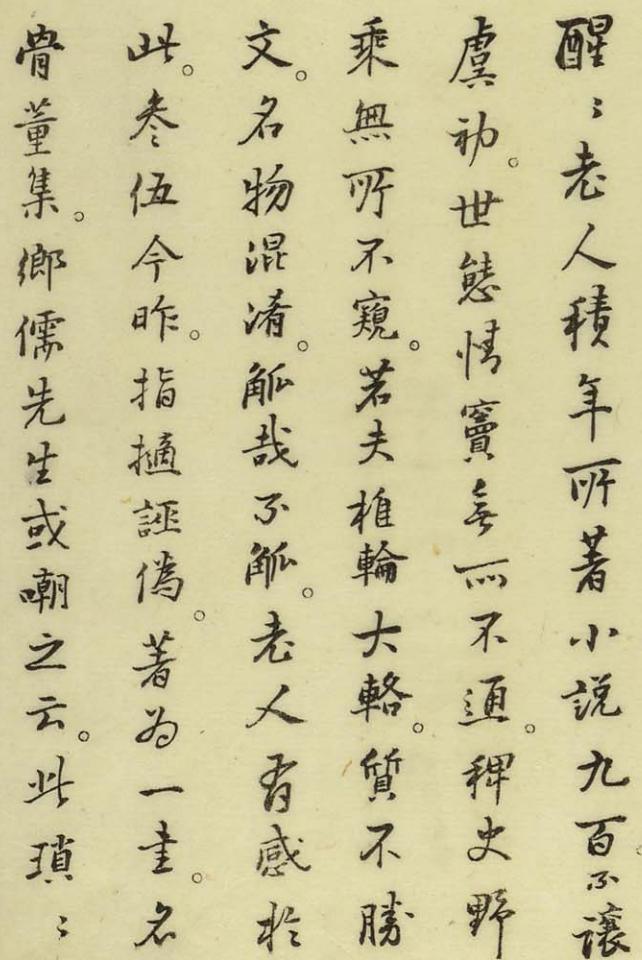 醒〻老人積年所著小説九百不讓
虞初。世態情竇無所不通。稗史野
乘無所不窺。若夫椎輪大輅。質不勝
文。名物混淆。觚哉不觚。老人有感於
此。叅伍今昨。指擿誣偽。著為一書。名
骨董集。鄉儒先生或嘲之云。此瑣〻